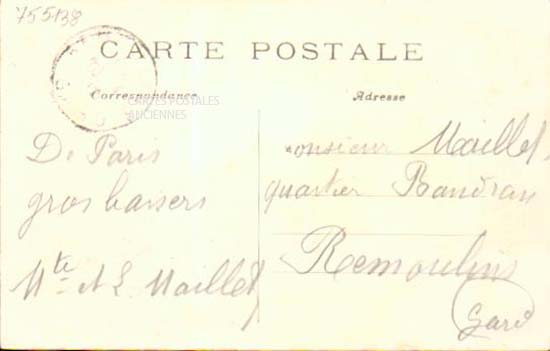 755138
CARTE POSTALE
Correspondance
Adresse
CARTES POSTALES
ANCIENNES
De Paris
gros baisers
Mte et L Maillet
monsieur Maillet
quartier Bandran
Remoulins
Gard